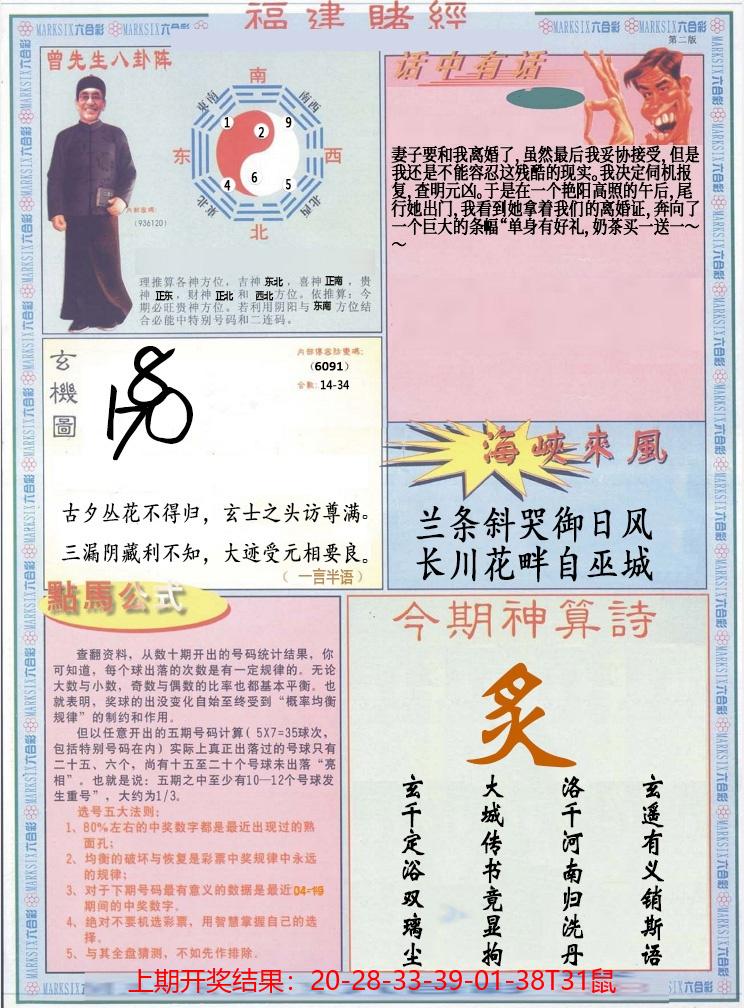 福建賭經
MARKSIX六合彩 MARKSIX六合彩
第二版
曾先生八卦阵
南
东南
南西
1
2
9
东
西
4
6
5
东北
北西
北
内部密碼:
(936120)
理推算各神方位，吉神东北，喜神正南，贵
神正东，财神正北和西北方位。依推算：今
期必旺贵神方位。若利用阴阳与东南方位结
合必能中特别号码和二连码。
话中有话
妻子要和我离婚了,虽然最后我妥协接受,但是
我还是不能容忍这残酷的现实。我决定伺机报
复,查明元凶。于是在一个艳阳高照的午后,尾
行她出门,我看到她拿着我们的离婚证,奔向了
一个巨大的条幅“单身有好礼,奶茶买一送一~
~
玄機圖
(6091)
合數: 14-34
古夕丛花不得归，玄士之头访尊满。
三漏阴藏利不知，大迹受元相要良。
（ 一言半语 ）
海峽來風
兰条斜哭御日风
长川花畔自巫城
點馬公式
查翻资料，从数十期开出的号码统计结果，你
可知道，每个球出落的次数是有一定规律的。无论
大数与小数，奇数与偶数的比率也都基本平衡。也
就表明，奖球的出没变化自始至终受到“概率均衡
规律”的制约和作用。
但以任意开出的五期号码计算( 5X7=35球次，
包括特别号码在内) 实际上真正出落过的号球只有
二十五、六个，尚有十五至二十个号球未出落“亮
相”。也就是说：五期之中至少有10—12个号球发
生重号”，大约为1/3。
选号五大法则：
1、80%左右的中奖数字都是最近出现过的熟
面孔；
2、均衡的破坏与恢复是彩票中奖规律中永远
的规律；
3、对于下期号码最有意义的数据是最近04-19
期间的中奖数字。
4、绝对不要机选彩票，用智慧掌握自己的选
择。
5、与其全盘猜测，不如先作排除.
今期神算詩
炙
玄遥有义销斯语
洛千河南归洗丹
大城传书竟显拘
玄千定浴双璃尘
上期开奖结果：20-28-33-39-01-38T31鼠